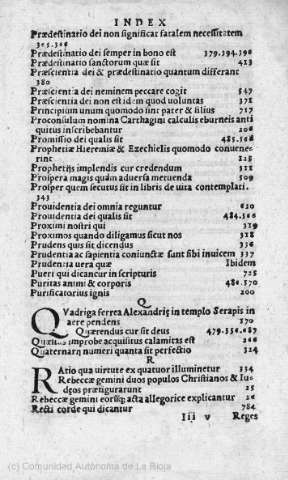 INDEX
Prædestinatio dei non significat fatalem necessitatem
305.306
Prædestinatio dei semper in bono est 379.394.396
Prædestinatio sanctorum quæ sit 423
Præscientia dei & prædestinatio quantum differant
380
Præscientia dei neminem peccare cogit 547
Præscientia dei non est idem quod uoluntas 378
Principium unum quomodo sint pater & filius 717
Proconsulum nomina Carthagini calculis eburneis anti
quitus inscribebantur 206
Promissio dei qualis sit 485.566
Prophetiæ Hieremiæ & Ezechielis quomodo conuene-
rint 215
Prophetijs implendis cur credendum 328
Prospera magis quàm aduersa metuenda 509
Prosper quem secutus sit in libris de uita contemplati.
343
Prouidentia dei omnia reguntur 620
Prouidentia dei qualis sit 484.566
Proximi nostri qui 329
Proximos quando diligamus sicut nos 328
Prudens quis sit dicendus 336
Prudentia ac sapientia coniunctæ sunt sibi inuicem 337
Prudentia uera quæ Ibidem
Pueri qui dicantur in scripturis 725
Puritas animi & corporis 480.570
Purificatorius ignis 200
Q
Quadriga ferrea Alexandriæ in templo Serapis in
aere pendens 370
Quærendus cur sit deus 479.556.687
improbe acquisitus calamitas est 266
Quaternarij numeri quanta sit perfectio 324
R
Ratio qua uirtute ex quatuor illuminetur 334
Rebeccæ gemini duos populos Christianos & Iu-
dæos præfigurarunt 25
Rebeccæ gemini eorumq; acta allegorice explicantur 26
Recti corde qui dicantur 784
Iii v Reges
(c) Comunidad Autónoma de La Rioja